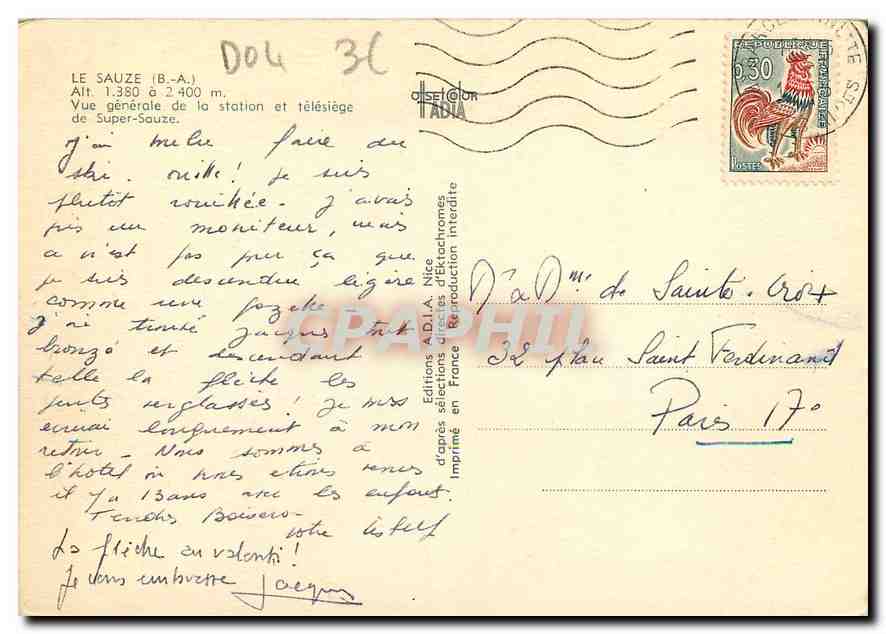 D04 3C
LE SAUZE (B.-A.)
Alt. 1.380 à 2 400 m.
Vue générale de la station et télésiège
de Super-Sauze.
OFFSETCOLOR
ADIA
RÉPUBLIQUE FRANÇAISE
0,30
POSTES
J'ai faire du
ski. ouille! je suis
plutôt rouillée. J'avais
pris un moniteur, mais
ce n'est pas pour ça que
je suis descendue légère
comme une
J'ai trouvé Jacques tout
bronzé et descendant
telle la flèche les
pentes verglassés! Je vous
écrirai longuement à mon
retour. Nous sommes à
l'hôtel où nous étions venus
il y a 13 ans avec les enfants.
Tendres Baisers
votre
La flèche au valenti!
Je vous embrasse Jacques
Editions A.D.I.A. Nice
d'après sélections directes d'Ektachromes
Imprimé en France Reproduction interdite
CPAPHIL
Mr & Mme de Sainte-Croix
32 place Saint Ferdinand
Paris 17°